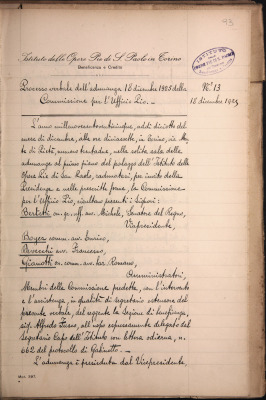 93
Istituto delle Opere Pie di S. Paolo in Torino
Beneficenza e Credito
Processo verbale dell'adunanza 18 dicembre 1925 della
Commissione per l'Ufficio Pio.
N.° 13
18 dicembre 1925
L'anno millenovecentoventicinque, addì diciotto del
mese di dicembre, alle ore diciassette, in Torino, via Mon
te di Pietà, numero trentadue, nella solita sala delle
adunanze al primo piano del palazzo dell'Istituto delle
Opere Pie di San Paolo, radunatasi, per invito della
Presidenza e nelle prescritte forme, la Commissione
per l'Ufficio Pio, risultano presenti i Signori:
Bertetti on. gr. uff. avv. Michele, Senatore del Regno,
Vicepresidente,
Boyer comm. avv. Enrico,
Pavecchi avv. Francesco,
Gianotti on. comm. avv. Romano,
Amministratori,
Membri della Commissione predetta, con l'intervento
e l'assistenza, in qualità di segretario estensore del
presente verbale, del reggente la Sezione di beneficenza,
sig. Alfredo all'uopo espressamente delegato dal
Segretario Capo dell'Istituto con lettera odierna, n.
662 del protocollo di Gabinetto.
L'adunanza è presieduta dal Vicepresidente.